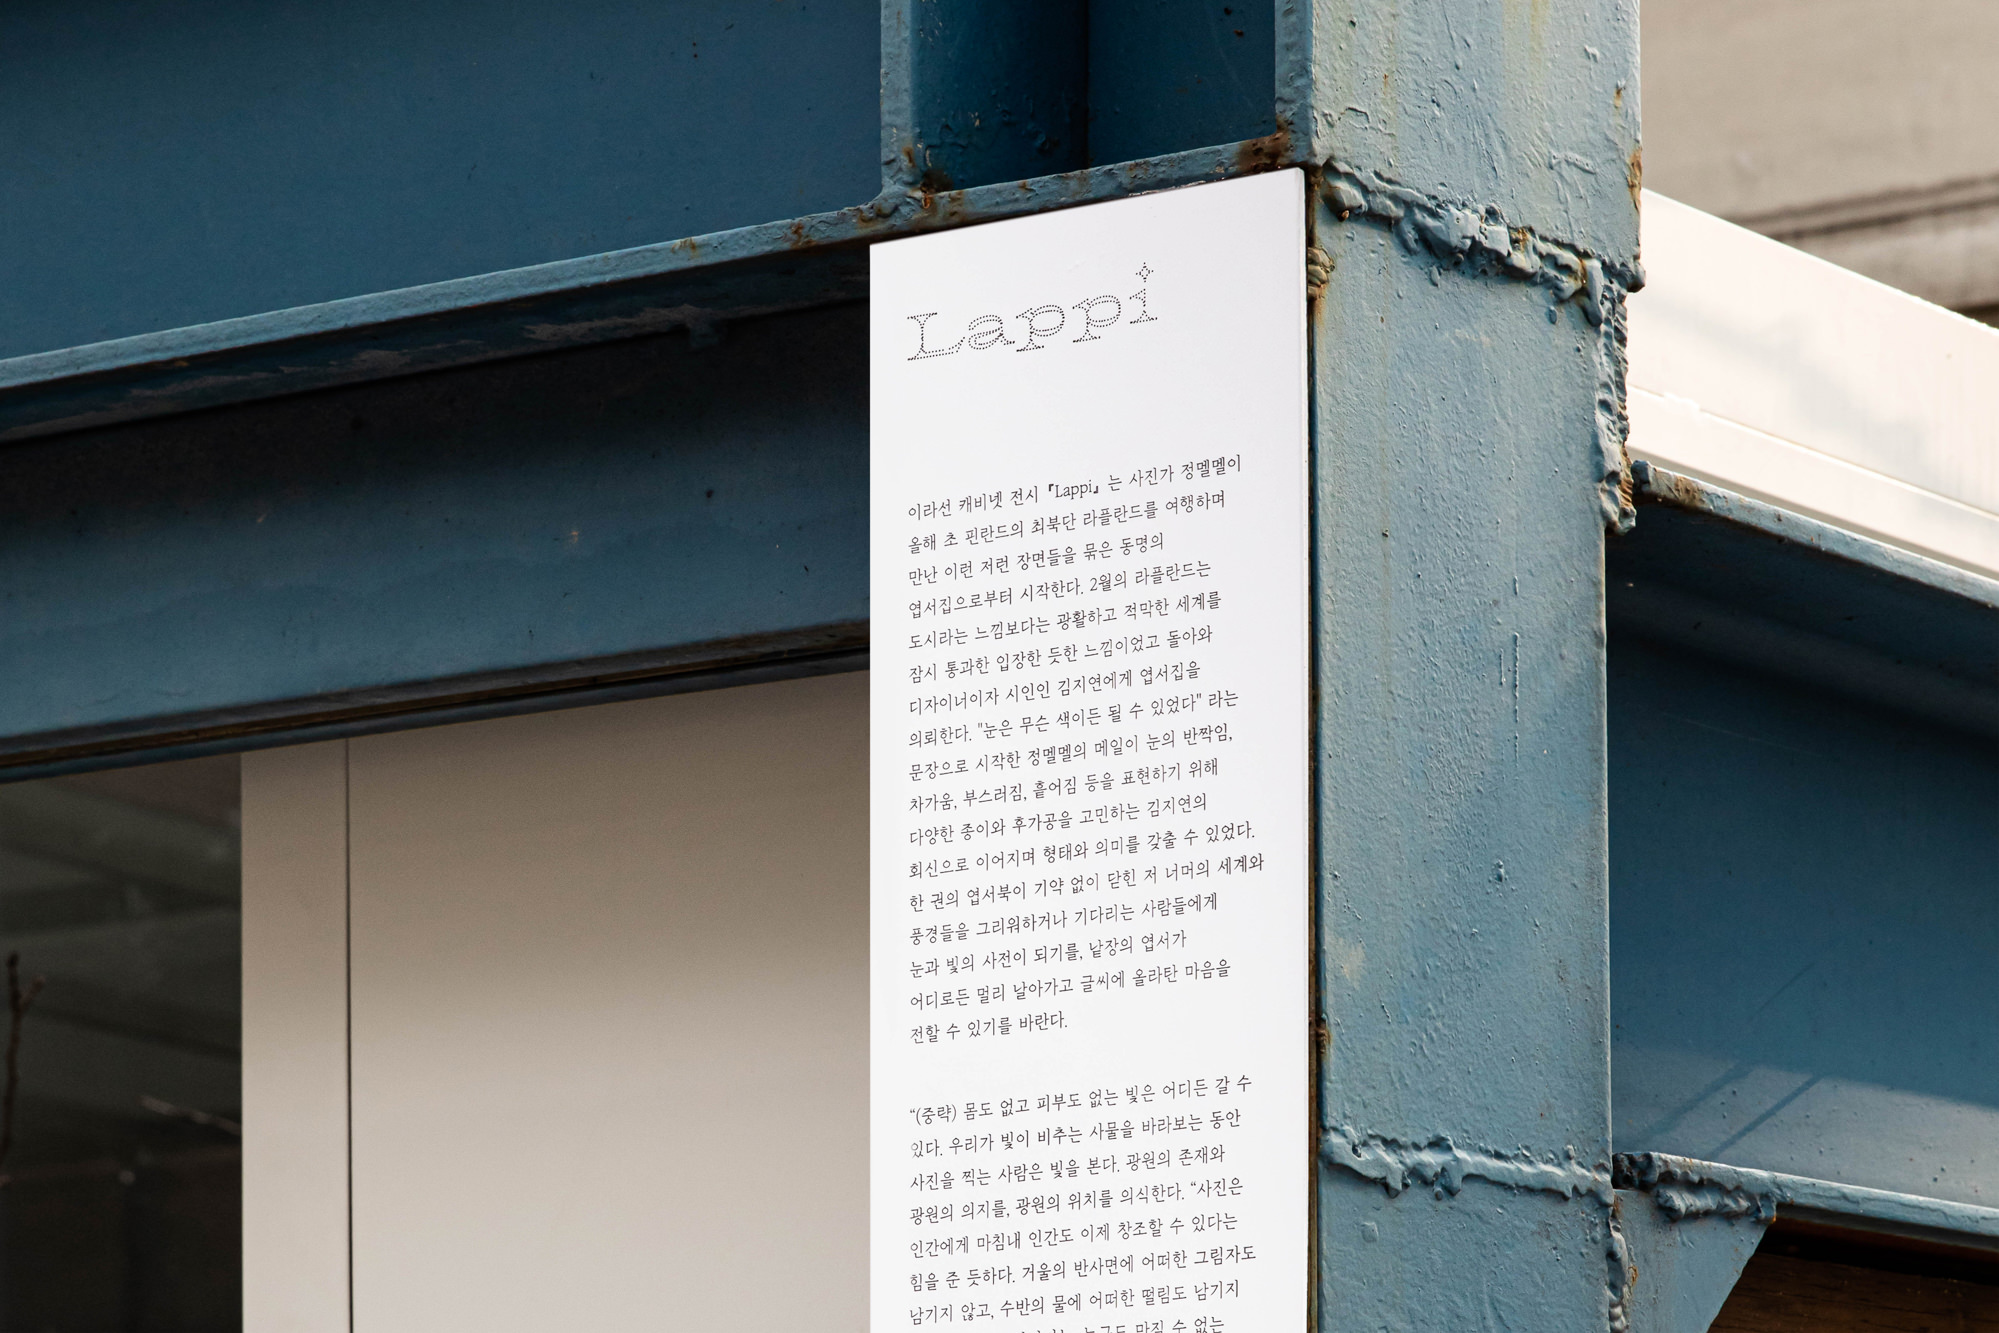 Lappi
이라선 캐비넷 전시 『Lappi』는 사진가 정멜멜이
올해 초 핀란드의 최북단 라플란드를 여행하며
만난 이런 저런 장면들을 묶은 동명의
엽서집으로부터 시작한다. 2월의 라플란드는
도시라는 느낌보다는 광활하고 적막한 세계를
잠시 통과한 입장한 듯한 느낌이었고 돌아와
디자이너이자 시인인 김지연에게 엽서집을
의뢰한다. "눈은 무슨 색이든 될 수 있었다" 라는
문장으로 시작한 정멜멜의 메일이 눈의 반짝임,
차가움, 부스러짐, 흩어짐 등을 표현하기 위해
다양한 종이와 후가공을 고민하는 김지연의
회신으로 이어지며 형태와 의미를 갖출 수 있었다.
한 권의 엽서북이 기약 없이 닫힌 저 너머의 세계와
풍경들을 그리워하거나 기다리는 사람들에게
눈과 빛의 사전이 되기를, 낱장의 엽서가
어디로든 멀리 날아가고 글씨에 올라탄 마음을
전할 수 있기를 바란다.
“(중략) 몸도 없고 피부도 없는 빛은 어디든 갈 수
있다. 우리가 빛이 비추는 사물을 바라보는 동안
사진을 찍는 사람은 빛을 본다. 광원의 존재와
광원의 의지를, 광원의 위치를 의식한다. “사진은
인간에게 마침내 인간도 이제 창조할 수 있다는
힘을 준 듯하다. 거울의 반사면에 어떠한 그림자도
남기지 않고, 수반의 물에 어떠한 떨림도 남기지
누구도 만질 수 없는